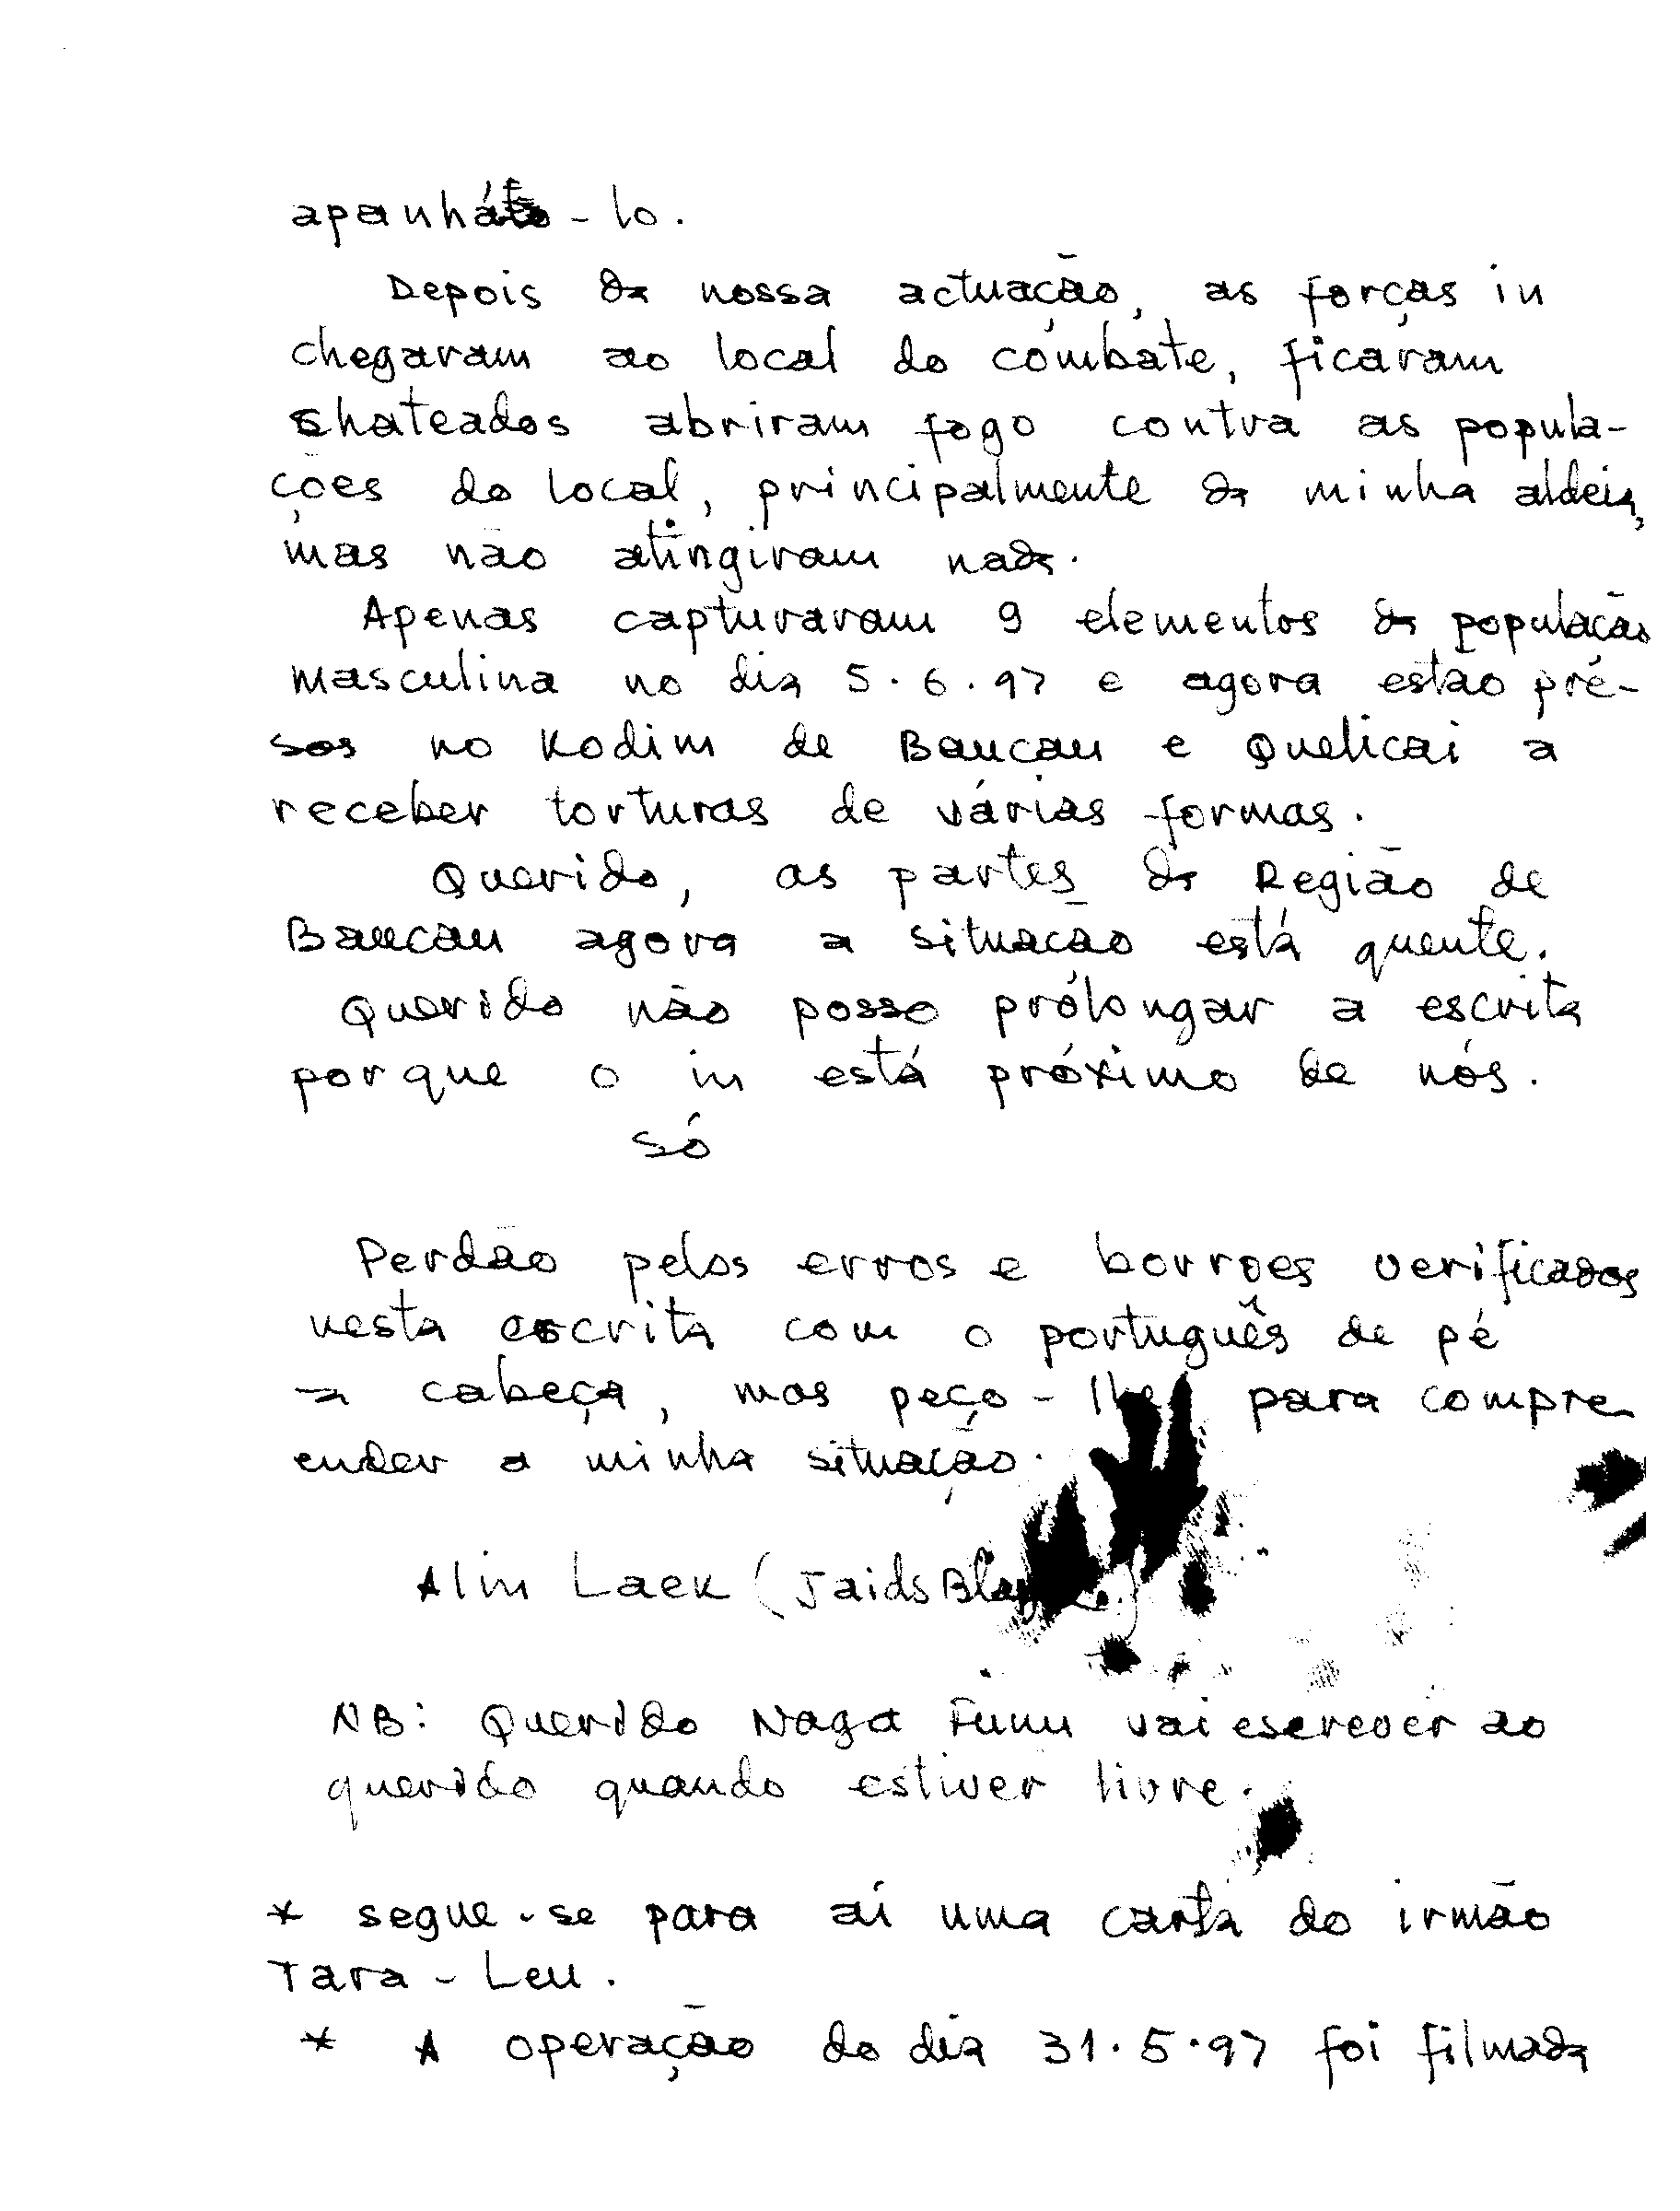 apanhá-lo.
Depois da nossa actuação, as forças in
chegaram ao local do combate, ficaram
chateados abriram fogo contra as popula-
ções do local, principalmente da minha aldeia,
mas não atingiram nada.
Apenas capturaram 9 elementos da população
masculina no dia 5.6.97 e agora estão pré-
sos no Kodim de Baucau e Quelicai a
receber torturas de várias formas.
Querido, as partes da Região de
Baucau agora a situação está quente.
Querido não posso prólongar a escrita
porque o in está próximo de nós.
Só
Perdão pelos erros e borrões verificados
nesta escrita com o português de pé
a cabeça, mas peço-lhe para compre
ender a minha situação.
Alin Laek (Jaids
NB: Querido Naga Funu vai escrever ao
querido quando estiver livre.
* segue-se para aí uma carta do irmão
Tara-Leu.
* A operação do dia 31.5.97 foi filmada